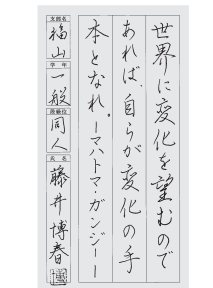 世界に変化を望むので
あれば、自らが変化の手
本となれ。―マハトマ・ガンジー―
支部名
福山
学年
一般
段級位
同人
氏名
藤井博春